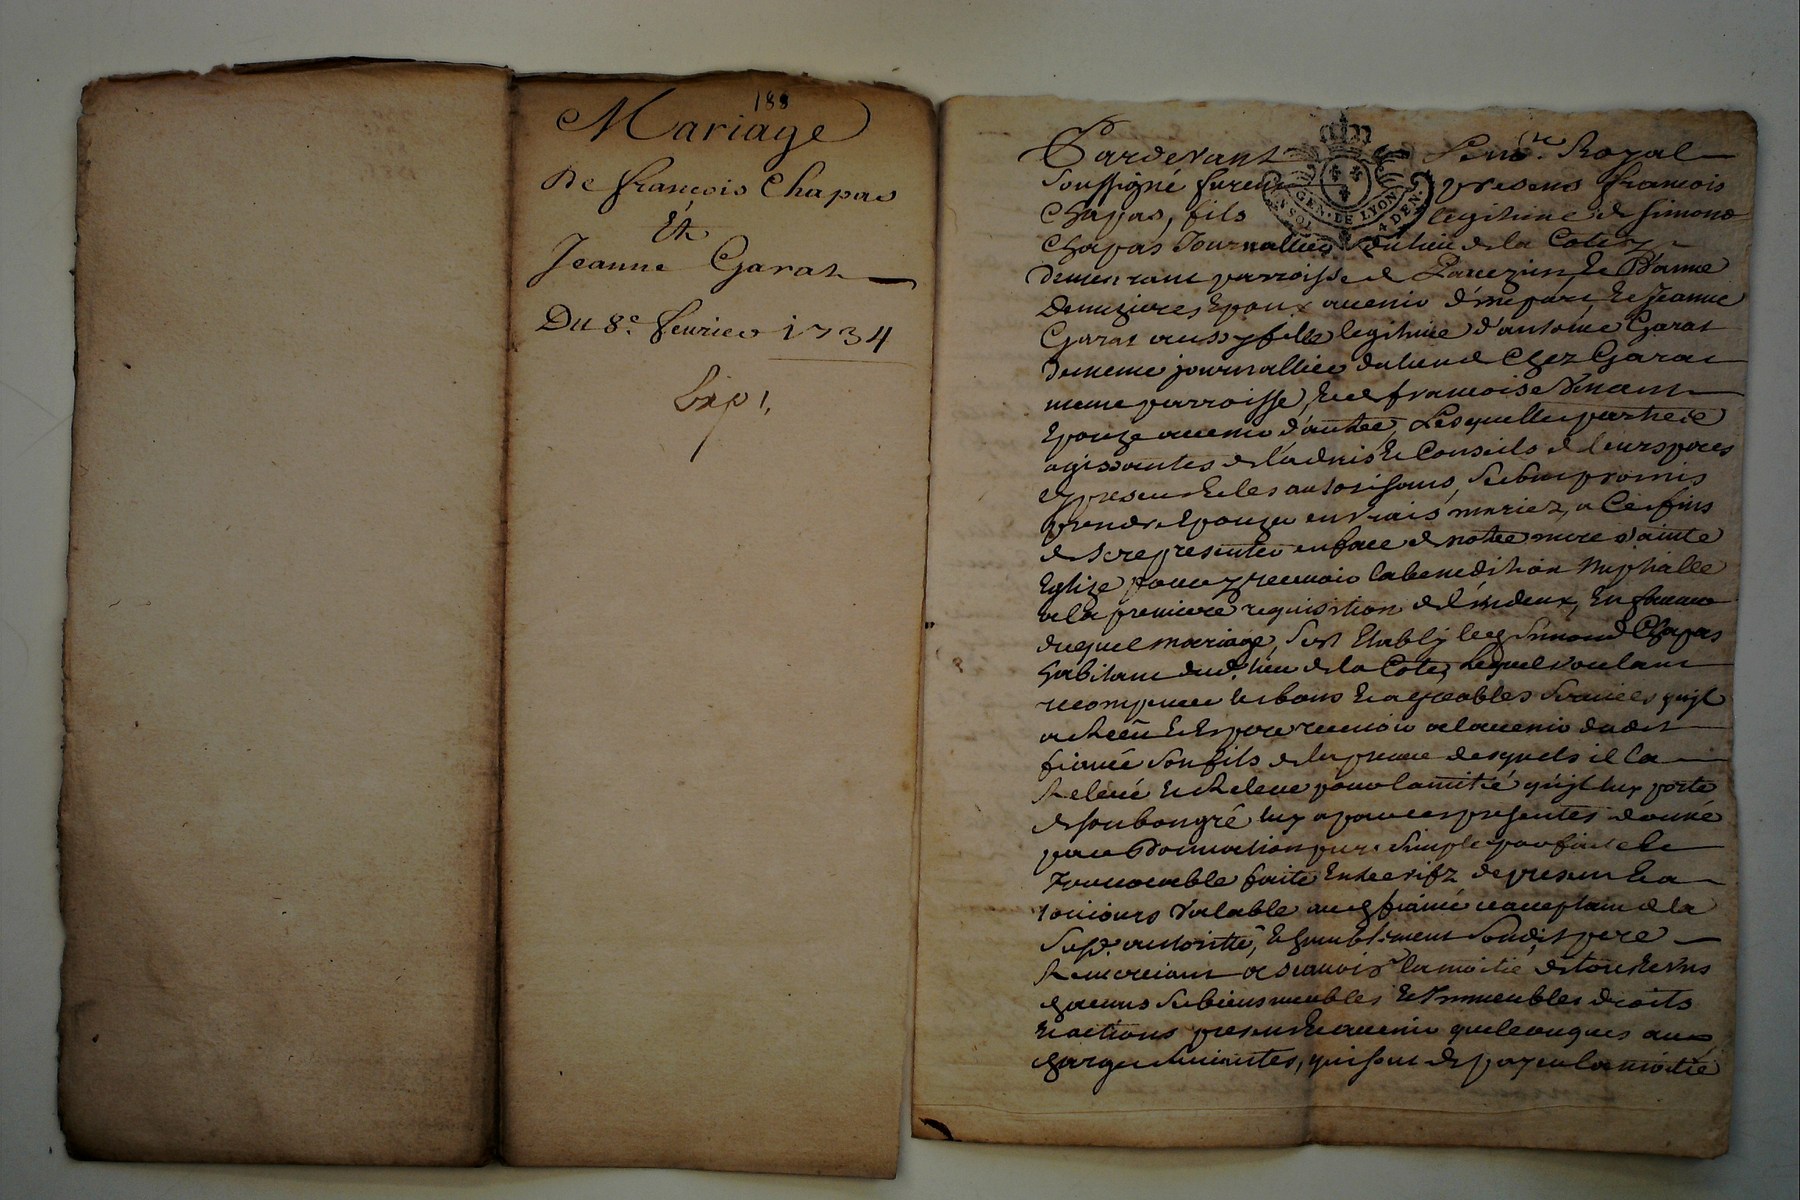 188
Mariage
De françois Chapas
Et
Jeanne Garat
Du 8e. feurier 1734
Exp
Pardevant Le nore. Royal
Soussigné furent presens françois
Chapas, fils legitime de Simond
Chapas Journallier du lieu de la Cote
GEN. DE LYON
demeurant parroisse de
Epoux auenir d'une part, Et Jeanne
Garat aussy fille legitime d'antoine Garat
de meme journallier du lieu de Chez Garat
meme parroisse, Et de francoise
Epouze auenir d'autre, Lesquelles parties
agissantes de l'aduis Et Conseils de leurs peres
cy presens Et les autorisans, Se sont promis
prendre Epouze en vrais mariez, a Ces fins
de se representer en face de notre mere Sainte
Eglize pour y receuoir la benediction Nuptialle
a la premiere requisition de l'un d'eux, En faueur
duquel mariage, S'est Etably led Simond Chapas
habitant dud. lieu de la Cote, Lequel voulant
recompencer les bons Et agreables Seruices qu'jl
a Receu Et Espere receuoir a l'auenir dudit
fiancé Son fils de la preuue desquels il l'a
Releué Et Releue pour l'amitié qu'jl luy porte
de son bon gré luy a par ces presentes donné
par Donnation pure Simple parfaite Et
Jrreuocable faite Entre vifz de present Et a
toujours valable aud fiancé acceptant de la
Susd. autorité, Et humblement Sondit pere
Remerciant a Scauoir la moitié de tous Et uns
chacuns Ses biens meubles Et Jmmeubles droits
Et actions presens Et auenir quelconques aux
charges Suiuantes, qui sont de payer la moitié